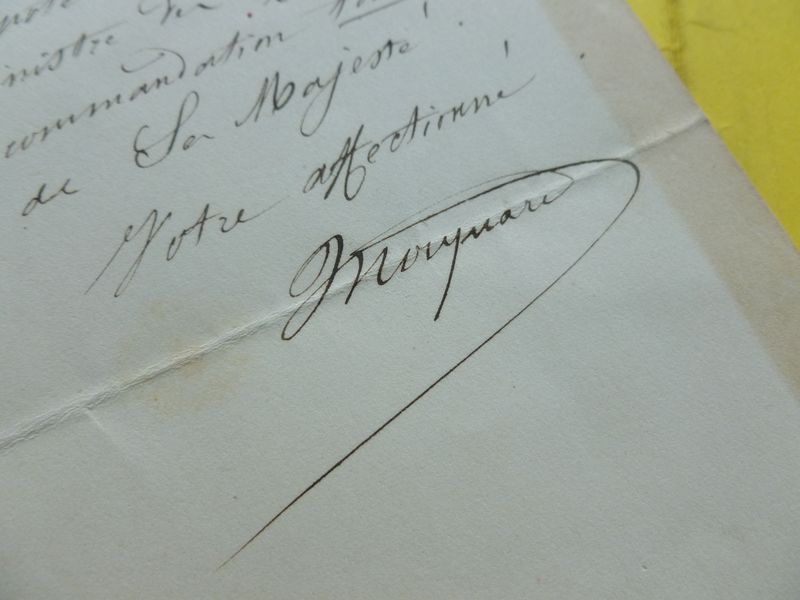 nistre de
commandation
de Sa Majesté
Votre affectionné
Mocquard